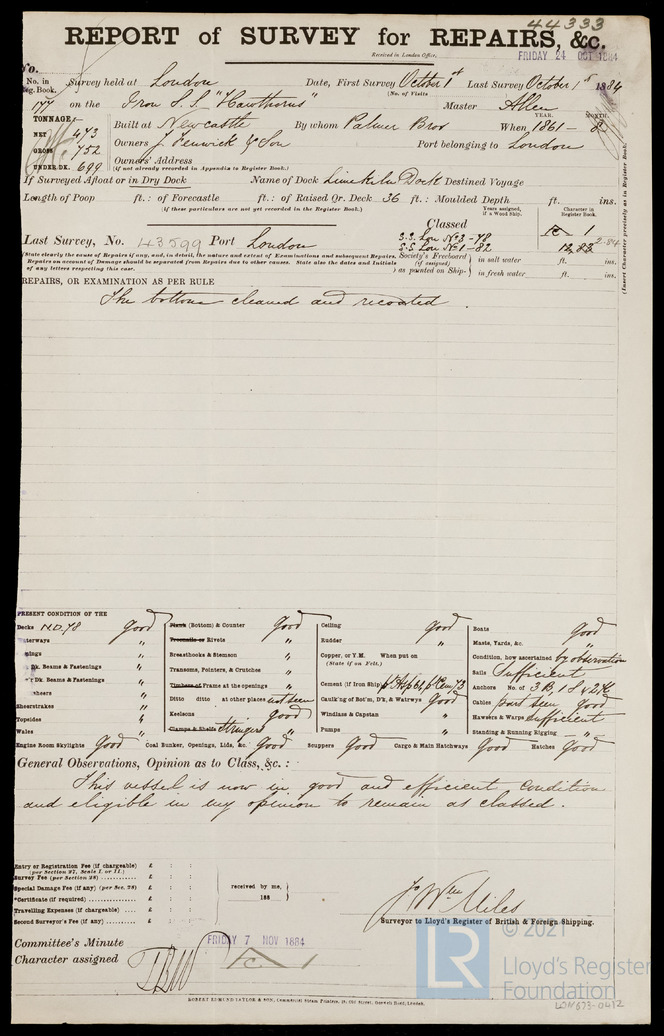 44333
REPORT of SURVEY for REPAIRS, &c.
Received in London Office, FRIDAY 24 OCT 1884
No.
No. in Reg. Book. Survey held at London Date, First Survey October 1st Last Survey October 1st 1884
(No. of Visits
177 on the Iron S.S. "Hawthorns" Master Allen
TONNAGE
YEAR. MONTH.
NET 473 Built at Newcastle By whom Palmer Bros When 1861 - 8
GROSS 752 Owners J. Fenwick & Son Port belonging to London
UNDER DK. 699 Owners' Address
(if not already recorded in Appendix to Register Book.)
If Surveyed Afloat or in Dry Dock Name of Dock Limekiln Dock Destined Voyage
Length of Poop ft.: of Forecastle ft.: of Raised Qr. Deck 36 ft.: Moulded Depth ft. ins.
(if these particulars are not yet recorded in the Register Book.)
Years assigned, if a Wood Ship.
Character in Register Book.
Classed
S.S. Lon No 3 - 78
S.S. Lon No 1 - 82
A 1
12,83 2-84
Last Survey, No. 43599 Port London
(State clearly the cause of Repairs if any, and, in detail, the nature and extent of Examinations and subsequent Repairs.
Repairs on account of Damage should be separated from Repairs due to other causes. State also the dates and Initials
of any letters respecting this case.
Society's Freeboard (if assigned) as painted on Ship- in salt water ft. ins.
in fresh water ft. ins.
(Insert Character precisely as in Register Book.)
REPAIRS, OR EXAMINATION AS PER RULE
The bottom cleaned and recoated.
PRESENT CONDITION OF THE
Decks N.D. 78 good
Waterways "
"
Dk. Beams & Fastenings "
Dk. Beams & Fastenings "
"
Sheerstrakes "
Topsides "
Wales "
Plank (Bottom) & Counter good
Treenails or Rivets "
Breasthooks & Stemson "
Transoms, Pointers, & Crutches "
Timbers of Frame at the openings "
Ditto ditto at other places not seen
Keelsons good
Clamps & Shelfs Stringers "
Ceiling good
Rudder "
Copper, or Y.M. When put on
(State if on Felt.)
Cement (if Iron Ship)
Caulk'ng of Bot'm, D'k, & Watrwys good
Windlass & Capstan "
Pumps "
Boats good
Masts, Yards, &c. "
Condition, how ascertained by observation
Sails Sufficient
Anchors No. of 3B, 1S & 2K
Cables part seen good
Hawsers & Warps sufficient
Standing & Running Rigging "
Engine Room Skylights good Coal Bunker, Openings, Lids, &c. good Scuppers good Cargo & Main Hatchways good Hatches good
General Observations, Opinion as to Class, &c. :
This vessel is now in good and efficient condition
and eligible in my opinion to remain as classed.
Entry or Registration Fee (if chargeable) £ : :
(per Section 27, Scale I. or II.)
Survey Fee (per Section 28) £ : :
Special Damage Fee (if any) (per Sec. 28) £ : :
*Certificate (if required) £ : :
Travelling Expenses (if chargeable) £ : :
Second Surveyor's Fee (if any) £ : :
received by me,
188
Jo Wm Miles
Surveyor to Lloyd's Register of British & Foreign Shipping.
Committee's Minute FRIDAY 7 NOV 1884
Character assigned A 1
ROBERT EDMUND TAYLOR & SON, Commercial Steam Printers, 19, Old Street, Goswell Road, London.
© 2021
LR
Lloyd's Register
Foundation
LON673-0412